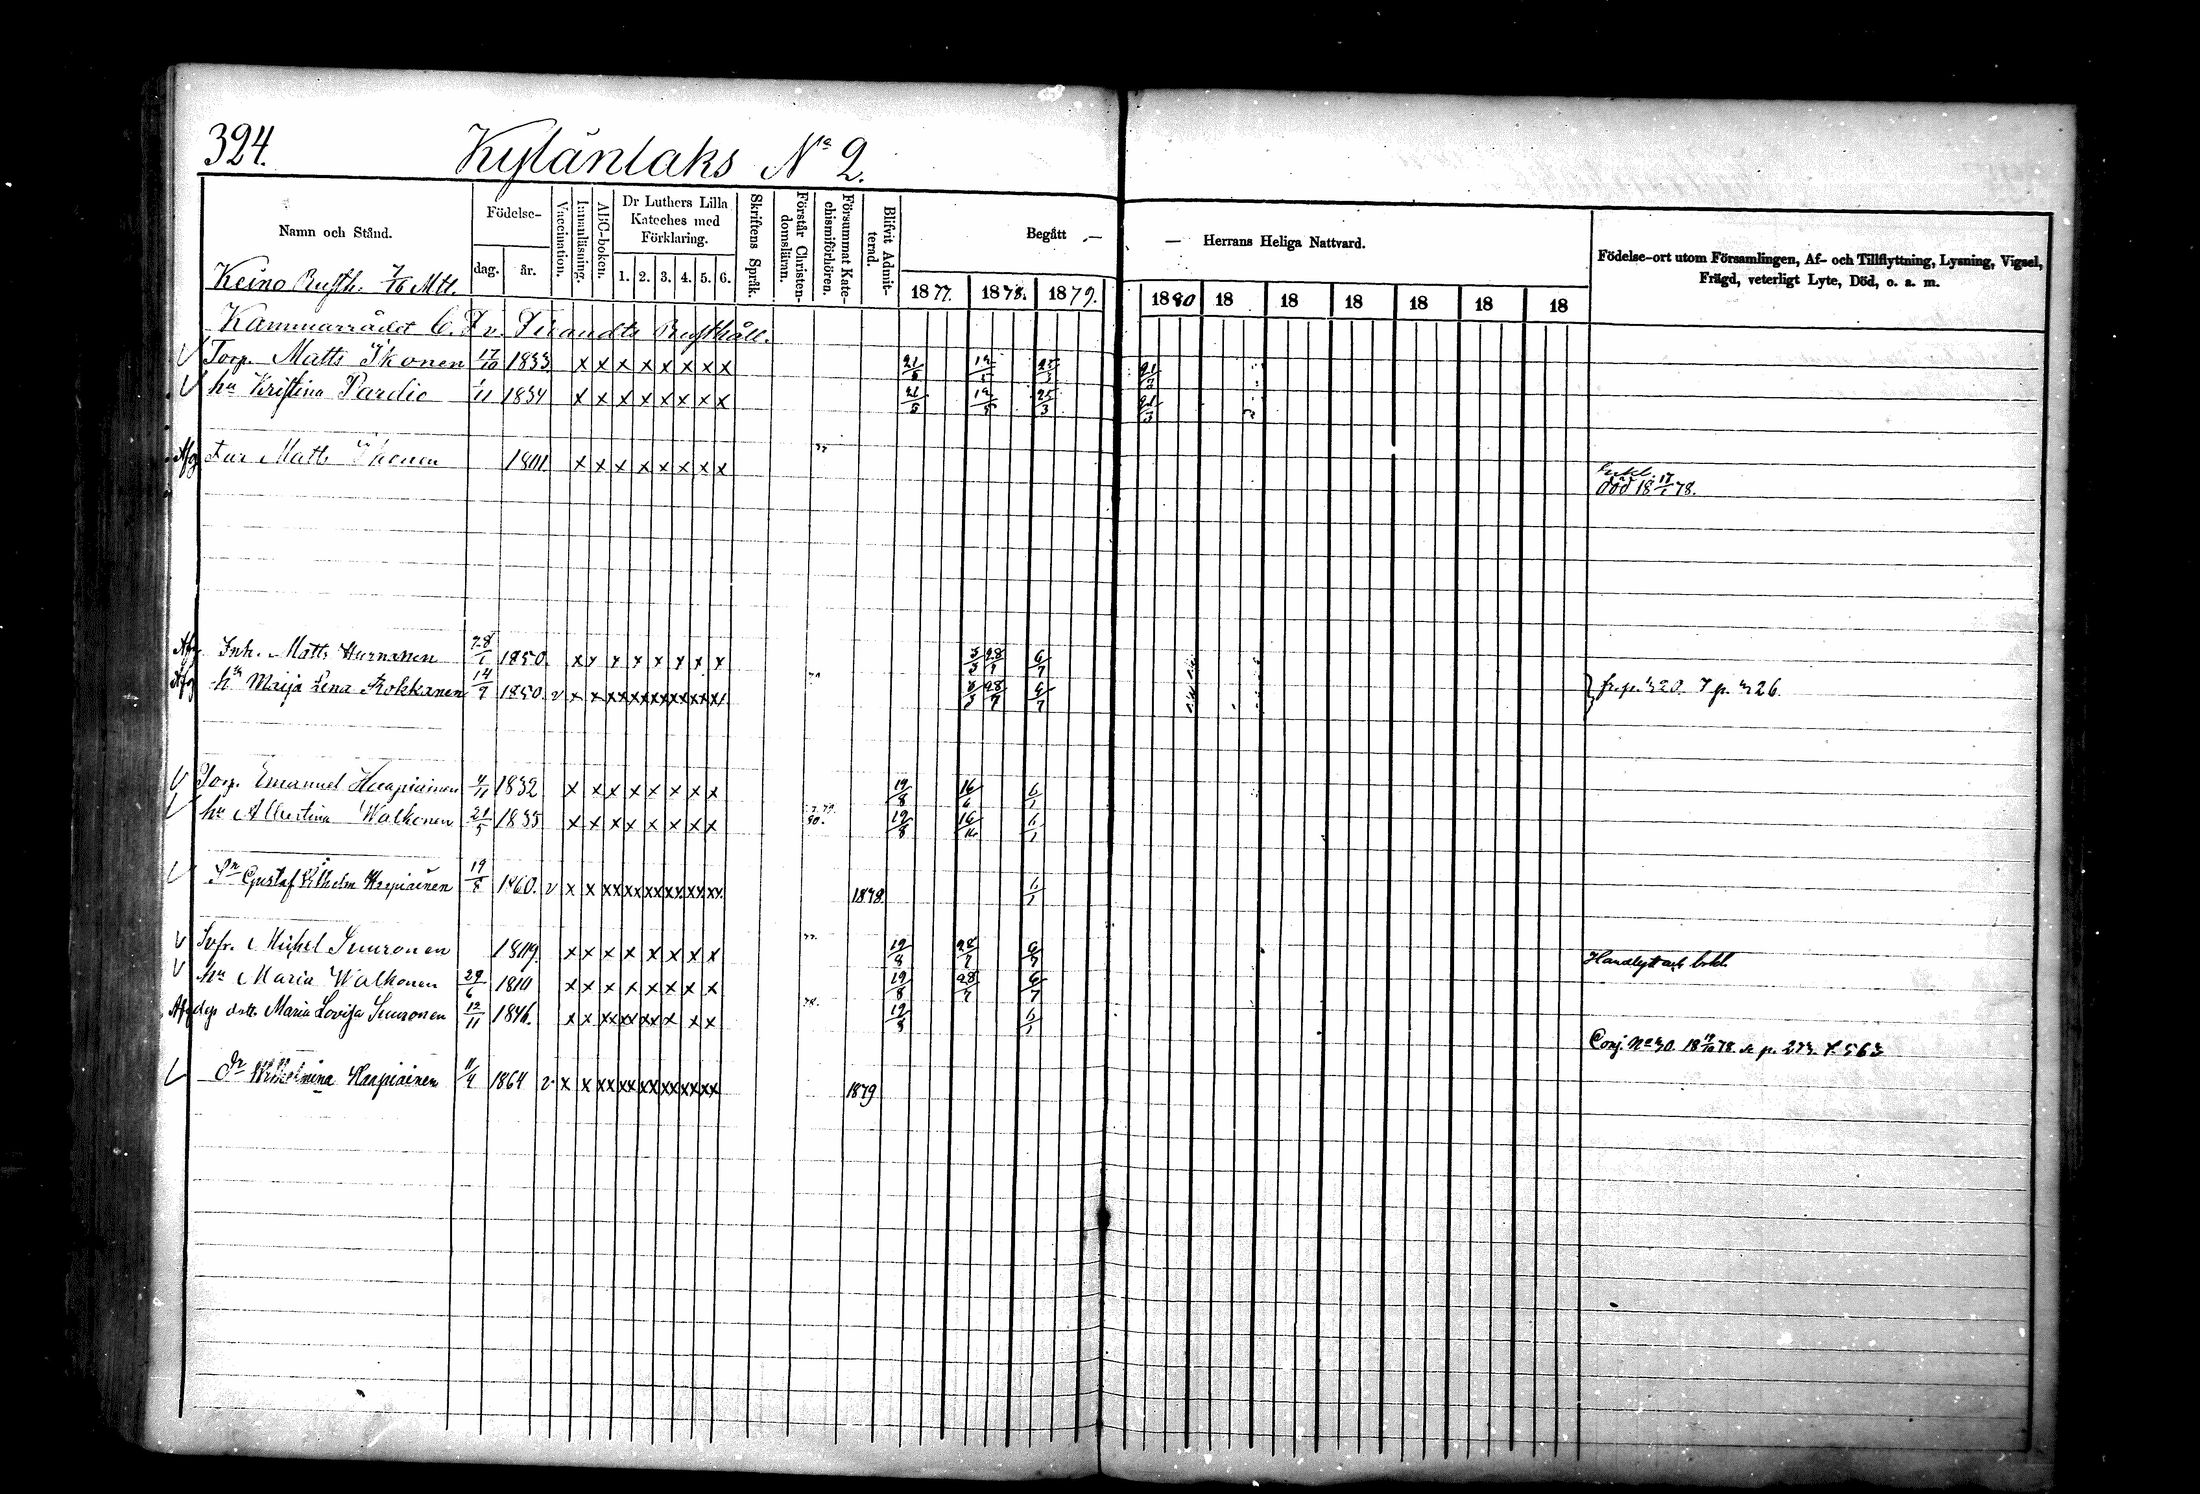 324.
Kylänlaks No 2.
Namn och Stånd.
Födelse-
dag.
år.
Vaccination.
Innanläsning.
ABC-boken.
Dr Luthers Lilla Kateches med Förklaring.
1. 2. 3. 4. 5. 6.
Skriftens Språk.
Förstår Christendomsläran.
Försummat Katechismiförhören.
Blifvit Admitterad.
Begått — — Herrans Heliga Nattvard.
1877. 1878. 1879. 1880 18 18 18 18 18 18
Födelse-ort utom Församlingen, Af- och Tillflyttning, Lysning, Vigsel,
Frägd, veterligt Lyte, Död, o. a. m.
Keino Rusth. Mtl.
Kammarrådet C. F. v. Rusthåll.
Torp. Matts Ikonen 17/10 1833 x x x x x x x x 21/5 12/5 25/3 21/3
hu Kristina Pardic 1834 x x x x x x x x 21/5 12/5 25/3 21/3
Afg Far Matts Ikonen 1801 x x x x x x x x
död 18 78.
Afg Inh. Matts Hurnanen 28/1 1850. x x x x x x x x 3/3 28/7 6/7
Afg hu Maija Lena Kokkanen 14/7 1850. v x x xx xx xx xx xx xx 3/3 28/7 6/7 p. 326.
v Torp. Emanuel Haapiainen 4/11 1832 x x x x x x x x 19/8 16/6 6/1
hu Albertina Walkonen 21/5 1835 x x x x x x x x 19/8 16/6 6/1
Sn Gustaf Vilhelm Haapiainen 19/8 1860. v x x xx xx xx xx xx xx 1878. 6/1
v Michel Suuronen 1809. x x x x x x x x 19/8 28/7 6/7
v hu Maria Walkonen 29/6 1810 x x x x x x x x 19/8 28/7 6/7
Afg dep dott. Maria Lovisa Suuronen 12/11 1846. x x xx xx xx x x 19/8 6/1
Conj. No 30. 18 78. p. 273. 563
Dr Vilhelmina Haapiainen 11/4 1864 v x x xx xx xx xx xx xx 1879